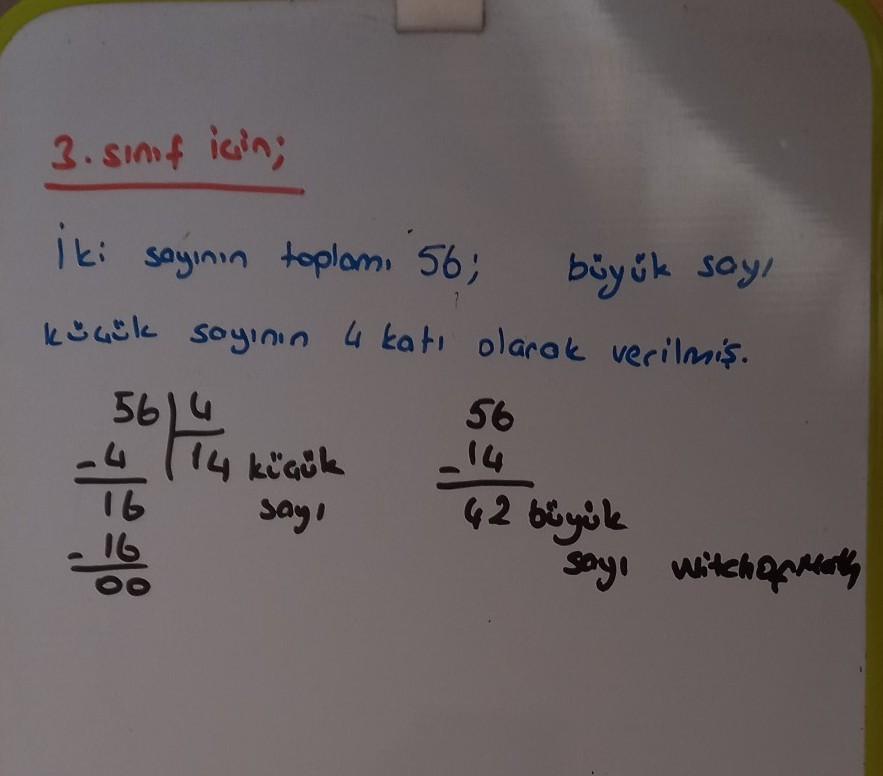 3. sınıf için;
İki sayının toplamı 56; büyük sayı
küçük sayının 4 katı olarak verilmiş.
56 4
- 4 14 küçük
16 sayı
- 16
00
56
- 14
42 büyük
sayı witchofMath